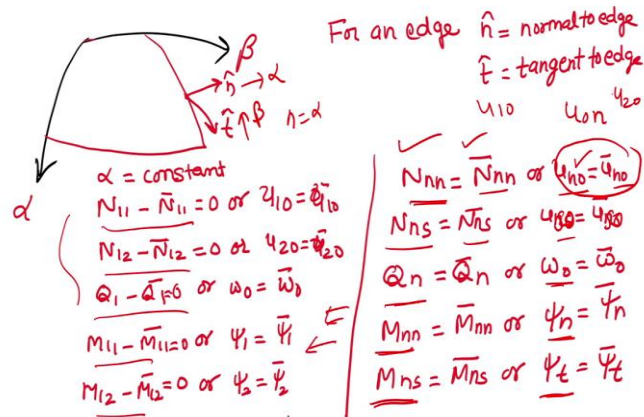 For an edge n̂ = normal to edge
t̂ = tangent to edge
β
n̂ → α
t̂ ↑ β n = α
u10 u0n u20
α
α = constant
N11 - N̄11 = 0 or u10 = ū10
N12 - N̄12 = 0 or u20 = ū20
Q1 - Q̄1 = 0 or ω0 = ω̄0
M11 - M̄11 = 0 or ψ1 = ψ̄1
M12 - M̄12 = 0 or ψ2 = ψ̄2
Nnn = N̄nn or un0 = ūn0
Nns = N̄ns or
Qn = Q̄n or ω0 = ω̄0
Mnn = M̄nn or ψn = ψ̄n
Mns = M̄ns or ψt = ψ̄t